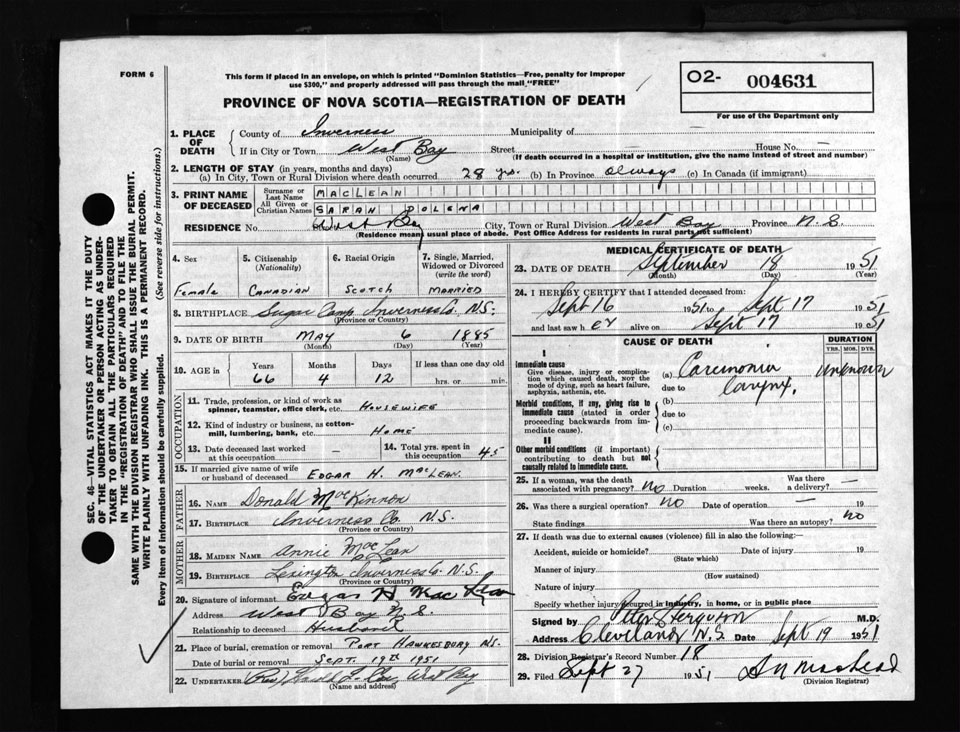 FORM 6
This form if placed in an envelope, on which is printed "Dominion Statistics—Free, penalty for improper
use $300," and properly addressed will pass through the mail "FREE"
PROVINCE OF NOVA SCOTIA—REGISTRATION OF DEATH
O2- 004631
For use of the Department only
SEC. 46—VITAL STATISTICS ACT MAKES IT THE DUTY
OF THE UNDERTAKER OR PERSON ACTING AS UNDER-
TAKER TO OBTAIN ALL THE PARTICULARS REQUIRED
IN THE "REGISTRATION OF DEATH" AND TO FILE THE
SAME WITH THE DIVISION REGISTRAR WHO SHALL ISSUE THE BURIAL PERMIT.
WRITE PLAINLY WITH UNFADING INK. THIS IS A PERMANENT RECORD.
Every item of information should be carefully supplied. (See reverse side for instructions.)
1. PLACE OF DEATH
County of Inverness Municipality of
If in City or Town West Bay Street House No. —
(Name) (If death occurred in a hospital or institution, give the name instead of street and number)
2. LENGTH OF STAY (in years, months and days)
(a) In City, Town or Rural Division where death occurred 28 yrs. (b) In Province always (c) In Canada (if immigrant)
3. PRINT NAME OF DECEASED
Surname or Last Name MACLEAN
All Given or Christian Names SARAH DOLENA
RESIDENCE No. West Bay City, Town or Rural Division West Bay Province N.S.
(Residence means usual place of abode. Post Office Address for residents in rural parts not sufficient)
4. Sex 5. Citizenship (Nationality) 6. Racial Origin 7. Single, Married, Widowed or Divorced (write the word)
Female CANADIAN SCOTCH MARRIED
8. BIRTHPLACE Sugar Camp Inverness Co. N.S.
(Province or Country)
9. DATE OF BIRTH MAY 6 1885
(Month) (Day) (Year)
10. AGE in Years Months Days If less than one day old
66 4 12 hrs. or min.
OCCUPATION
11. Trade, profession, or kind of work as
spinner, teamster, office clerk, etc. HOUSEWIFE
12. Kind of industry or business, as cotton-
mill, lumbering, bank, etc. HOME
13. Date deceased last worked at this occupation — 14. Total yrs. spent in this occupation 45
15. If married give name of wife or husband of deceased EDGAR H. MacLEAN.
FATHER
16. NAME Donald MacKinnon
17. BIRTHPLACE Inverness Co. N.S.
(Province or Country)
MOTHER
18. MAIDEN NAME Annie MacLean
19. BIRTHPLACE Lexington Inverness Co. N.S.
(Province or Country)
20. Signature of informant Edgar H MacLean
Address West Bay N.S.
Relationship to deceased Husband
21. Place of burial, cremation or removal PORT HAWKESBURY N.S.
Date of burial or removal SEPT. 19TH 1951
22. UNDERTAKER (Rev) Harold West Bay
(Name and address)
MEDICAL CERTIFICATE OF DEATH
23. DATE OF DEATH September 18 1951
(Month) (Day) (Year)
24. I HEREBY CERTIFY that I attended deceased from:
Sept 16 1951 to Sept 17 1951
and last saw her alive on Sept 17 1951
CAUSE OF DEATH DURATION
YRS. MOS. DYS.
I
Immediate cause
Give disease, injury or complication which caused death, NOT the mode of dying, such as heart failure, asphyxia, asthenia, etc.
(a) Carcinoma Unknown
due to Larynx.
Morbid conditions, if any, giving rise to immediate cause (stated in order proceeding backwards from immediate cause).
(b)
due to
(c)
II
Other morbid conditions (if important) contributing to death but not causally related to immediate cause.
25. If a woman, was the death associated with pregnancy? No Duration weeks. Was there a delivery? —
26. Was there a surgical operation? No Date of operation — 19
State findings Was there an autopsy? no
27. If death was due to external causes (violence) fill in also the following:
Accident, suicide or homicide? Date of injury 19
(State which)
Manner of injury
(How sustained)
Nature of injury
Specify whether injury occurred in industry, in home, or in public place
Signed by Ferguson M.D.
Address Cleveland N.S. Date Sept 19 1951
28. Division Registrar's Record Number 18
29. Filed Sept 27 1951
(Division Registrar)